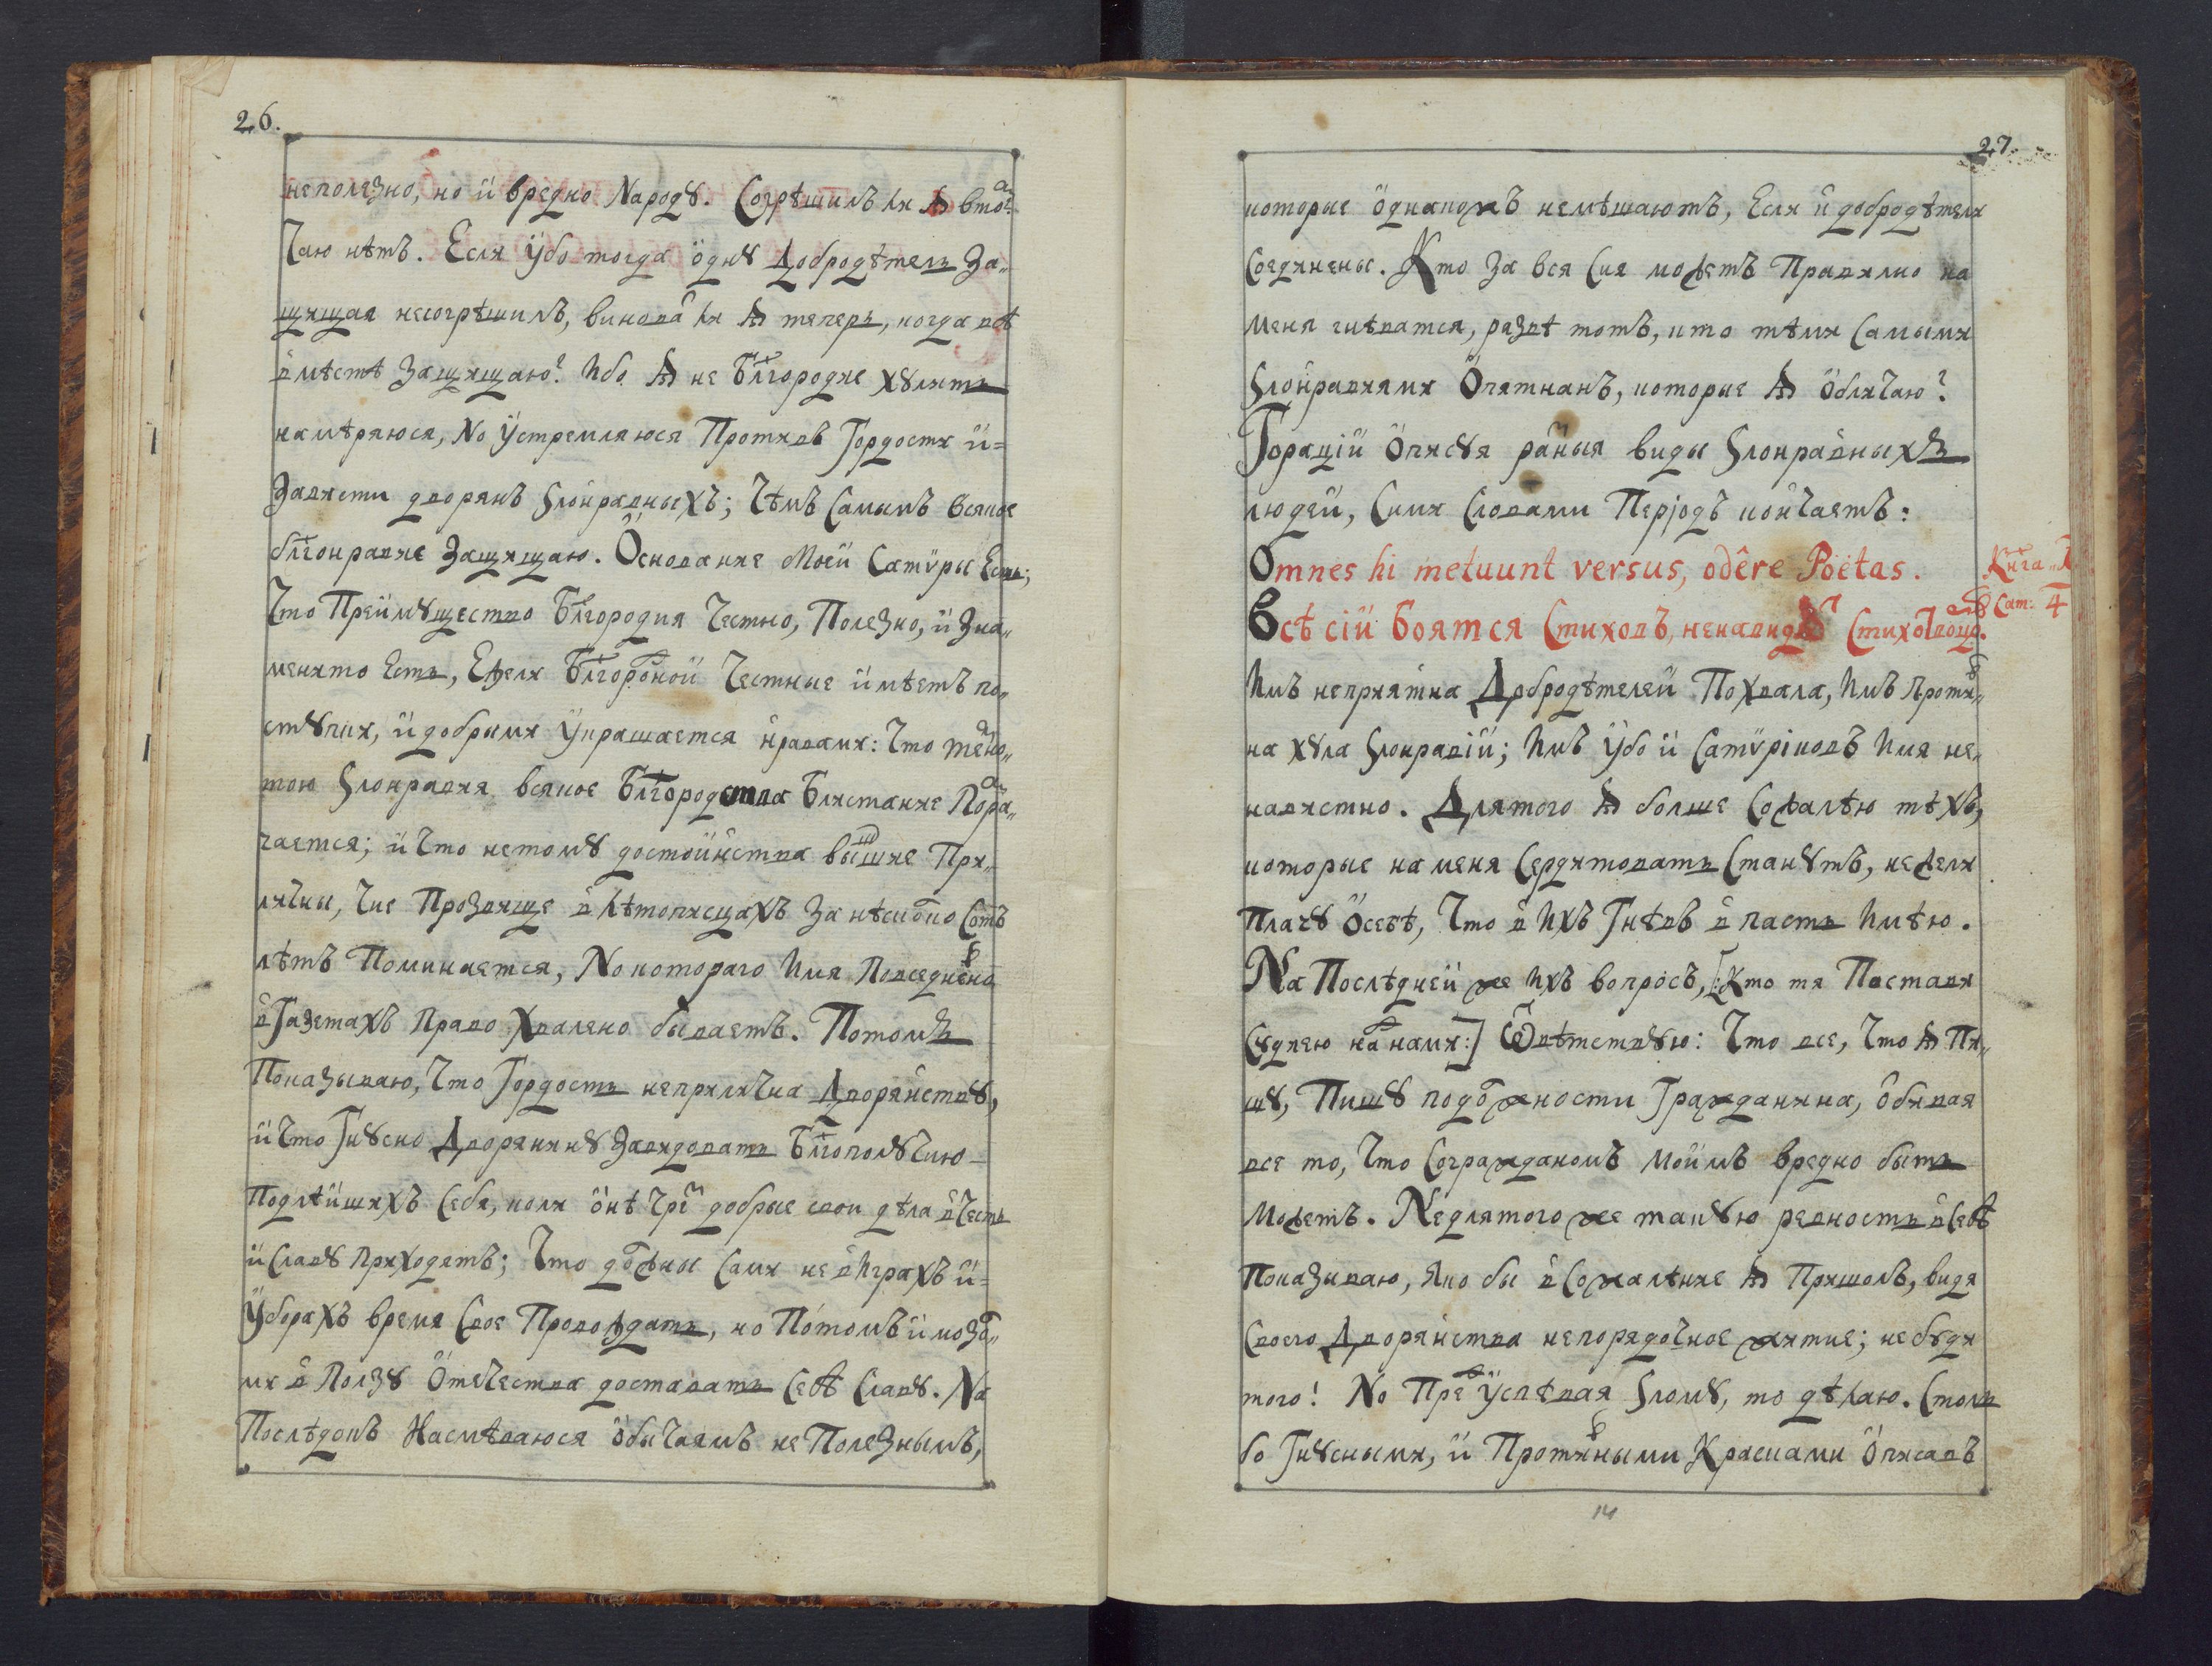 26.
неполезно, но и вредно Народꙋ. Согрѣшилъ ли Ѧ втом?
Чаю нѣтъ. Если ꙋбо тогда однꙋ Добродѣтель За-
щищая несогрѣшилъ, виноват ли Ѧ теперь, когда всѣ
вмѣстѣ Защищаю? Ибо Ѧ не Блгородие хꙋлить
намѣряюся, No устремляюся Противъ Гордости и=
Зависти дворянъ Ѕлонравныхъ; Чѣмъ Самымъ Всякое
блгонравие Защищаю. Основание Моей Сатѵры Есть;
Что Преимꙋщество Блгородия Честно, Полезно, и Зна-
менито Есть, Ежели Блгородной Честные имѣетъ по-
стꙋпки, и добрыми украшается нравами: Что темно-
тою Ѕлонравия всякое Блгородства Блистание Помра-
чается; и Что нетомꙋ достоинства вышшие При-
личны, Чие Прозвище в лѣтописцахъ За нѣсколко Сотъ
лѣтъ Поминается, No котораго Имя Повседневно
вГазетахъ Право Хвалено бываетъ. Потомъ
Показываю, Что Гордость неприлична Дворянствꙋ,
и Что Гнꙋсно Дворянинꙋ Завидовать Блгополꙋчию
Подлѣйшихъ Себя, коли онѣ Чрез добрые свои дѣла вЧесть
и Славꙋ приходятъ; Что должны Сами не вИграхъ и=
уборахъ время Свое Провождать, но Потомъ и мозол-
ми в Ползꙋ Отечества доставать Себѣ Славꙋ. Na
Послѣдокъ Насмѣваюся обычаямъ не Полезнымъ,
27.
которые однакожъ немѣшаютъ, Если и добродѣтели
Соединены. Кто За вся Сия можетъ Правилно на
меня гнѣватся, развѣ тотъ, кто тѣми Самыми
Ѕлонравиями Опятнанъ, которые Ѧ обличаю?
Горацїй описꙋя разныя виды Ѕлонравныхъ
людей, Сими Словами Перїодъ кончаетъ:
Omnes hi metuunt versus, odêre Poëtas.
Всѣ сїи Боятся Стиховъ, ненавидят Стихотворцов.
Книга 1
Сат: 4
Имъ неприятна Добродѣтелей Похвала, Имъ Против-
на хꙋла Ѕлонравїй; Имъ ꙋбо и Сатѵрїковъ Имя не-
навистно. Длятого Ѧ болше Сожалѣю тѣхъ,
которые на меня Сердитовать Станꙋтъ, нежели
Плачꙋ осебѣ, Что в Ихъ Гнѣвъ впасть Имѣю.
Na Послѣдней же Ихъ вопросъ, [:Кто тя Поставил
Сꙋдиею над нами:] Ѿвѣтствꙋю: Что все, Что Ѧ Пи-
шꙋ, Пишꙋ подолжности Гражданина, обивая
все то, Что Согражданомъ Моимъ вредно быть
Можетъ. Nедлятого же такꙋю ревность в Себѣ
Показываю, Яко бы вСожалѣние Ѧ Пришолъ, видя
Своего Дворянства непорядочное житие; не бꙋди
того! No Пред успѣвая Ѕломꙋ, то дѣлаю. Столь
бо Гнꙋсными, и Противными Красками описавъ
14